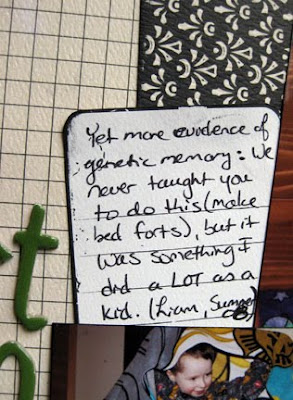 Yet more evidence of
genetic memory: We
never taught you
to do this (make
bed forts), but it
was something I
did a LOT as a
kid. (Liam, Summer
t